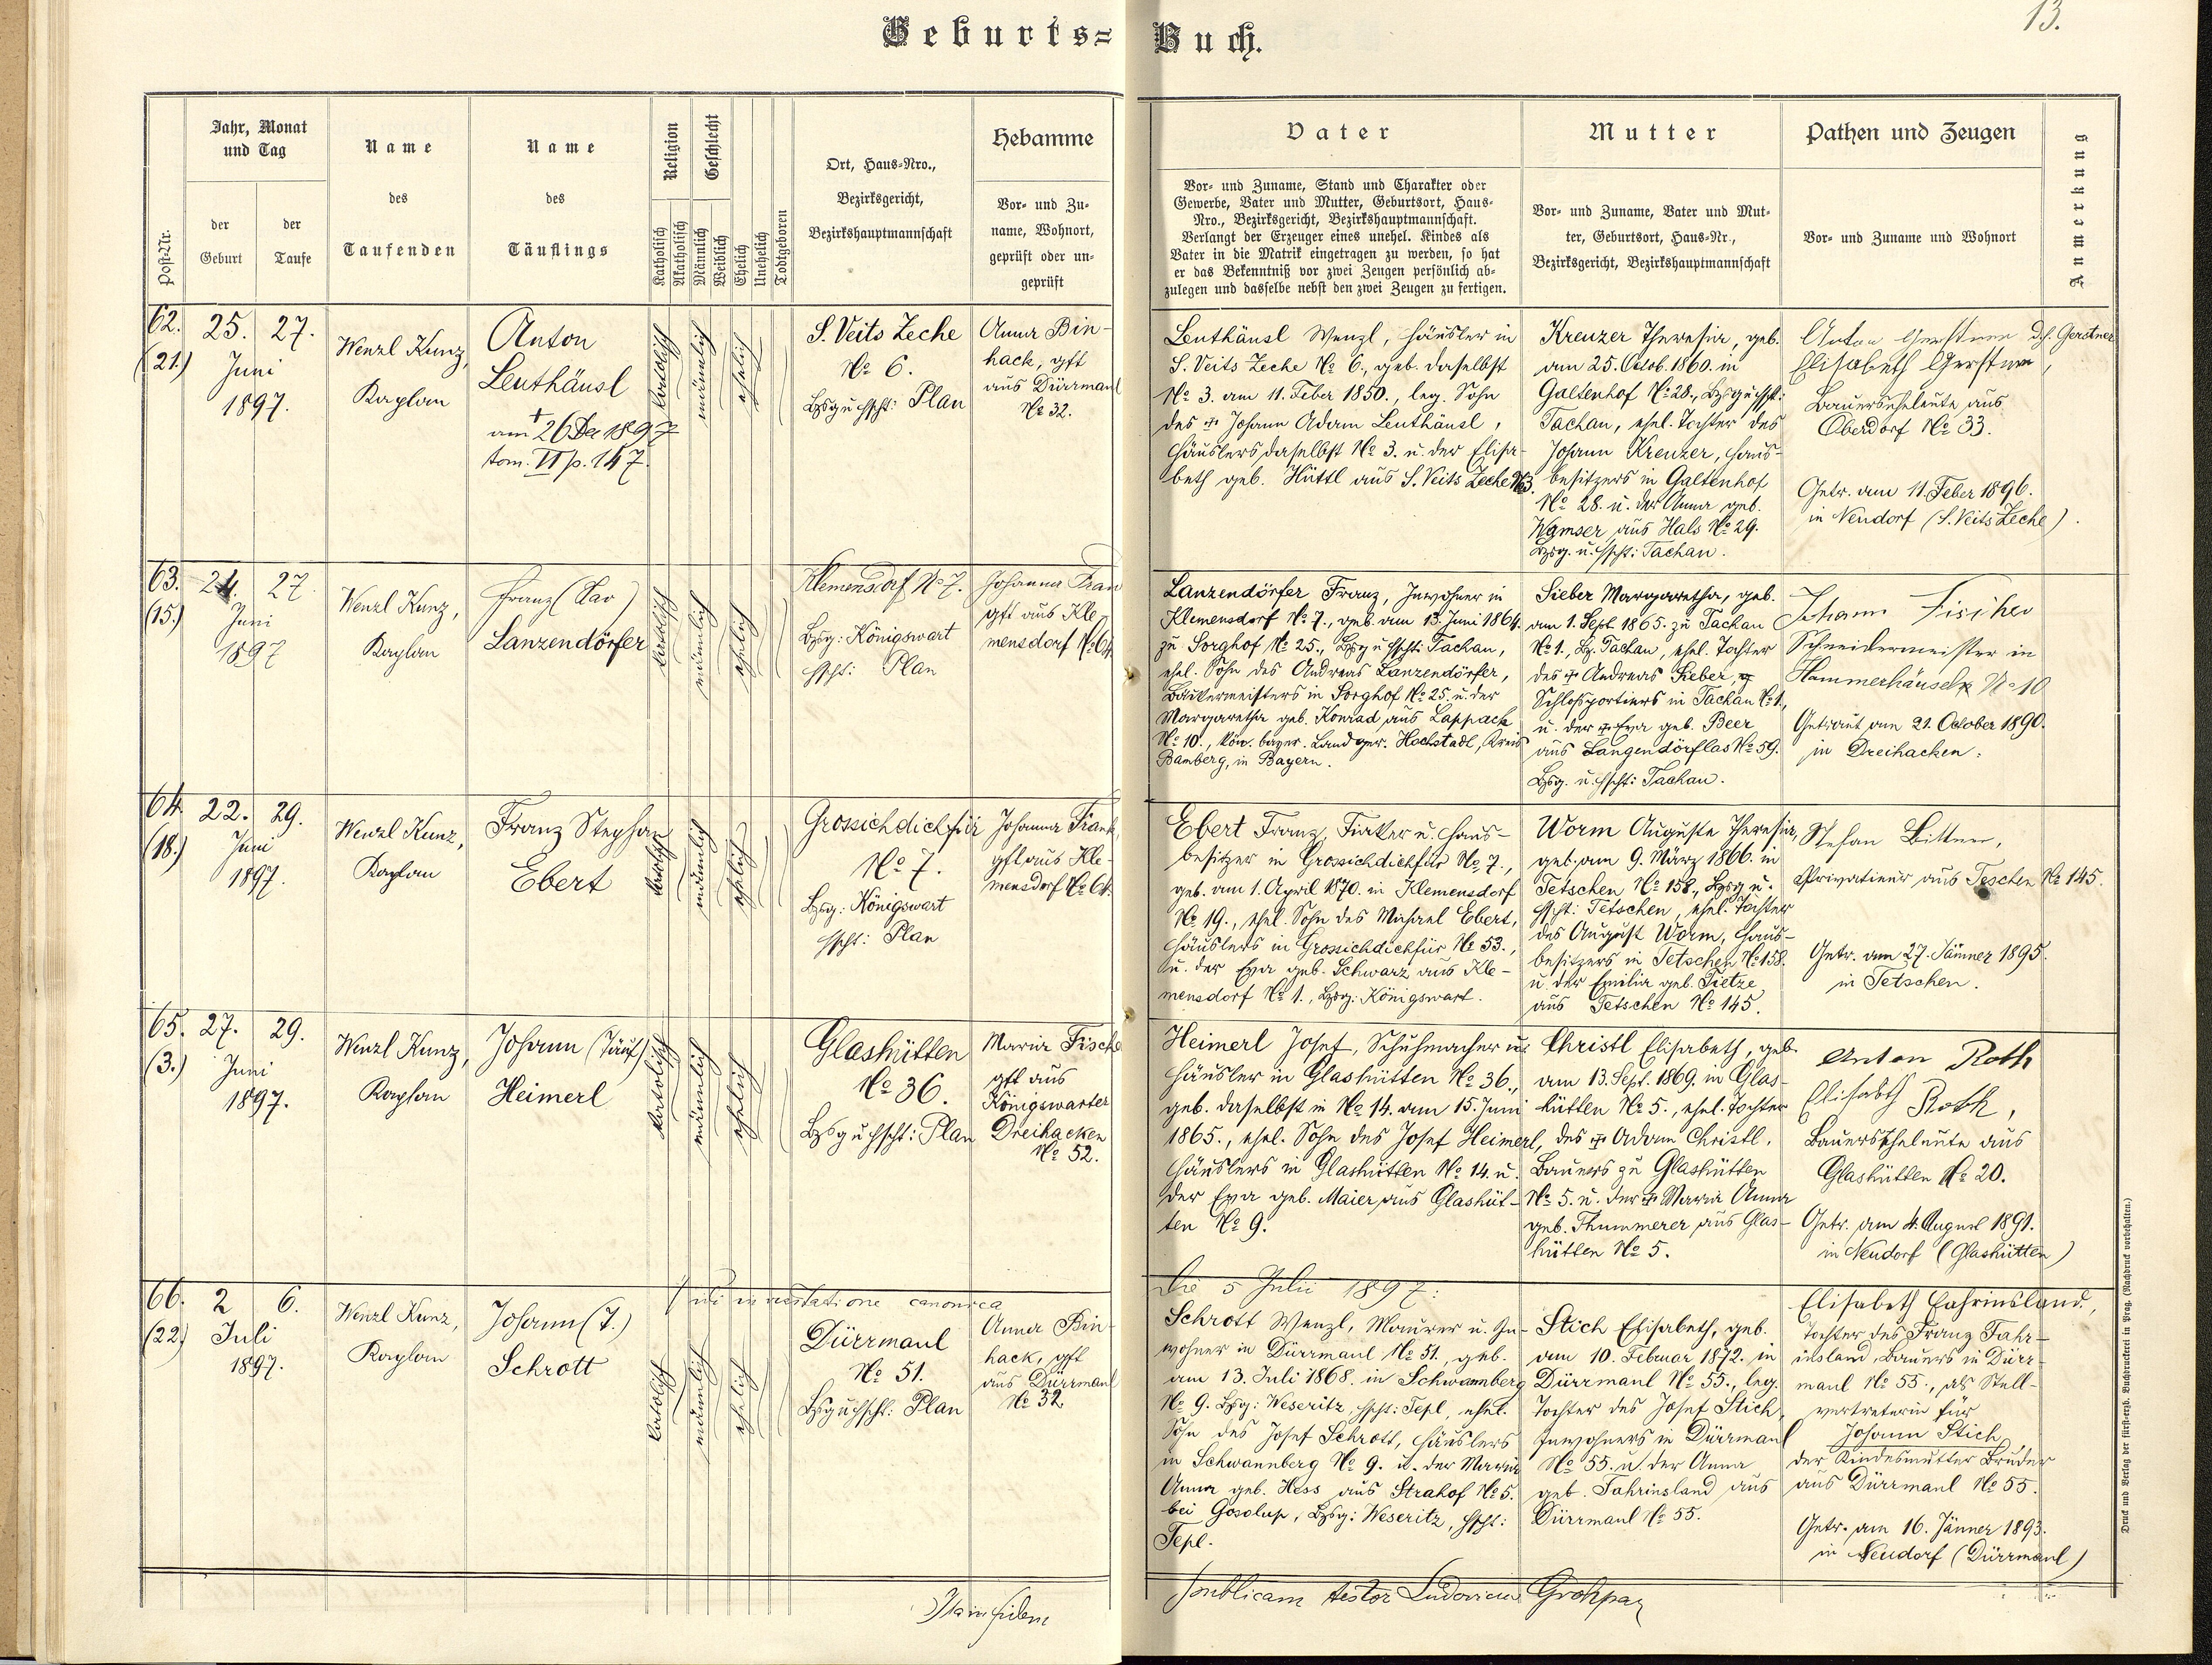 13.
Geburts=Buch.
Post-Nr.
Jahr, Monat
und Tag
der
Geburt
der
Taufe
Name
des
Taufenden
Name
des
Täuflings
Religion
Katholisch
Akatholisch
Geschlecht
Männlich
Weiblich
Ehelich
Unehelich
Todtgeboren
Ort, Haus-Nro.,
Bezirksgericht,
Bezirkshauptmannschaft
Hebamme
Vor- und Zu-
name, Wohnort,
geprüft oder un-
geprüft
Vater
Vor- und Zuname, Stand und Charakter oder
Gewerbe, Vater und Mutter, Geburtsort, Haus-
Nro., Bezirksgericht, Bezirkshauptmannschaft.
Verlangt der Erzeuger eines unehel. Kindes als
Vater in die Matrik eingetragen zu werden, so hat
er das Bekenntniß vor zwei Zeugen persönlich ab-
zulegen und dasselbe nebst den zwei Zeugen zu fertigen.
Mutter
Vor- und Zuname, Vater und Mut-
ter, Geburtsort, Haus-Nr.,
Bezirksgericht, Bezirkshauptmannschaft
Pathen und Zeugen
Vor- und Zuname und Wohnort
Anmerkung
62.
(21.)
25. 27.
Juni
1897.
Wenzl Kunz,
Kaplan
Anton
Leuthäusl
†
am 26 Dez 1897
tom. VI p. 147.
katolisch
männlich
ehelich
S. Veits Zeche
No 6.
Bzsg u hscht: Plan
Anna Bin-
hack, gft
aus Dürrmaul
No 32.
Leuthäusl Wenzl, Häusler in
S. Veits Zeche No 6., geb. daselbst
No 3. am 11. Feber 1850., leg. Sohn
des † Johann Adam Leuthäusl,
Häuslers daselbst No 3. u. der Elisa-
beth geb. Hüttl aus S. Veits Zeche No 3.
Kreuzer Theresia, geb.
am 25. Octob. 1860. in
Galtenhof No 28., Bzsg u hscht:
Tachau, ehel. Tochter des
Johann Kreuzer, Haus-
besitzers in Galtenhof
No 28. u. der Anna geb.
Wamser aus Hals No 29.
Bzsg. u. hscht: Tachau.
Anton Gerstner d.h. Gerstner
Elisabeth Gerstner,
Bauerseheleute aus
Oberdorf No 33.
Getr. am 11. Feber 1896.
in Neudorf (S. Veits Zeche).
63.
(15.)
24. 27.
Juni
1897
Wenzl Kunz,
Kaplan
Franz (Xav)
Lanzendörfer
katolisch
männlich
ehelich
Klemensdorf No 7.
Bzsg: Königswart
hscht: Plan
Johanna Frank
gft aus Kle-
mensdorf No 64.
Lanzendörfer Franz, Inwohner in
Klemensdorf No 7., geb. am 13. Juni 1864.
zu Sorghof No 25., Bzsg u hscht: Tachau,
ehel. Sohn des Andreas Lanzendörfer,
Bäckermeisters in Sorghof No 25. u. der
Margaretha geb. Konrad aus Lappach
No 10., kön. bayer. Landger. Hochstadt, Kreis
Bamberg, in Bayern.
Sieber Margaretha, geb.
am 1. Sept. 1865. zu Tachau
No 1., Bz. Tachau, ehel. Tochter
des † Andreas Sieber,
Schloßportiers in Tachau No 1.,
u. der † Eva geb. Beer
aus Langendörflas No 59.
Bzsg. u. hscht: Tachau.
Johann Fischer
Schneidermeister in
Hammerhäuseln No 10
Getraut am 21. October 1890.
in Dreihacken.
64.
(18.)
22. 29.
Juni
1897.
Wenzl Kunz,
Kaplan
Franz Stephan
Ebert
katolisch
männlich
ehelich
Grossichdichfür
No 7.
Bzsg: Königswart
hscht: Plan
Johanna Frank,
gft aus Kle-
mensdorf No 64.
Ebert Franz, Fiaker u. Haus-
besitzer in Grossichdichfür No 7.,
geb. am 1. April 1870. in Klemensdorf
No 19., ehel. Sohn des Michael Ebert,
Häuslers in Grossichdichfür No 53.,
u. der Eva geb. Schwarz aus Kle-
mensdorf No 1., Bzsg: Königswart.
Worm Auguste Theresia,
geb. am 9. März 1866. in
Tetschen No 158., Bzsg u.
hscht: Tetschen, ehel. Tochter
des August Worm, Haus-
besitzers in Tetschen No 158.
u. der Emilia geb. Tietze
aus Tetschen No 145.
Stefan Bittner,
Privatineur aus Teschen No 145.
Getr. am 27. Jänner 1895.
in Tetschen.
65.
(3.)
27. 29.
Juni
1897.
Wenzl Kunz,
Kaplan
Johann (Täuf)
Heimerl
katolisch
männlich
ehelich
Glashütten
No 36.
Bzsg u hscht: Plan
Maria Fische
gft aus
Königswarter
Dreihacken
No 52.
Heimerl Josef, Schuhmacher u.
Häusler in Glashütten No 36.,
geb. daselbst in No 14. am 15. Juni
1865., ehel. Sohn des Josef Heimerl,
Häuslers in Glashütten No 14. u.
der Eva geb. Maier aus Glashüt-
ten No 9.
Christl Elisabeth, geb.
am 13. Sept. 1869. in Glas-
hütten No 5., ehel. Tochter
des † Adam Christl,
Bauers zu Glashütten
No 5. u. der † Maria Anna
geb. Thummerer aus Glas-
hütten No 5.
Anton Roth
Elisabeth Roth,
Bauerseheleute aus
Glashütten No 20.
Getr. am 4. August 1891.
in Neudorf (Glashütten)
66.
(22.)
2 6.
Juli
1897.
Wenzl Kunz,
Kaplan
Johann (T.)
Schrott
Vidi in visitatione canonica
Die 5 Julii 1897.
katolisch
männlich
ehelich
Dürrmaul
No 51.
Bzsg u hscht: Plan
Anna Bin-
hack, gft
aus Dürrmaul
No 32.
Schrott Wenzl, Maurer u. In-
wohner in Dürrmaul No 51., geb.
am 13. Juli 1868. in Schwannberg
No 9. Bzsg: Weseritz, hscht: Tepl, ehel.
Sohn des Josef Schrott, Häuslers
in Schwannberg No 9. u. der Maria
Anna geb. Hess aus Strahof No 5.
bei Gosolup, Bzsg: Weseritz, hscht:
Tepl.
Stich Elisabeth, geb.
am 10. Februar 1872. in
Dürrmaul No 55., leg.
Tochter des Josef Stich,
Inwohners in Dürrmaul
No 55. u. der Anna
geb. Fahrinsland aus
Dürrmaul No 55.
Elisabeth Fahrinsland,
Tochter des Franz Fahr-
insland, Bauers in Dürr-
maul No 55., als Stell-
vertreterin für
Johann Stich
der Kindesmutter Bruder
aus Dürrmaul No 55.
Getr. am 16. Jänner 1893.
in Neudorf (Dürrmaul)
publicam testor Ludovicus
Druck und Verlag der fürst-erzb. Buchdruckerei in Prag. (Nachdruck vorbehalten.)